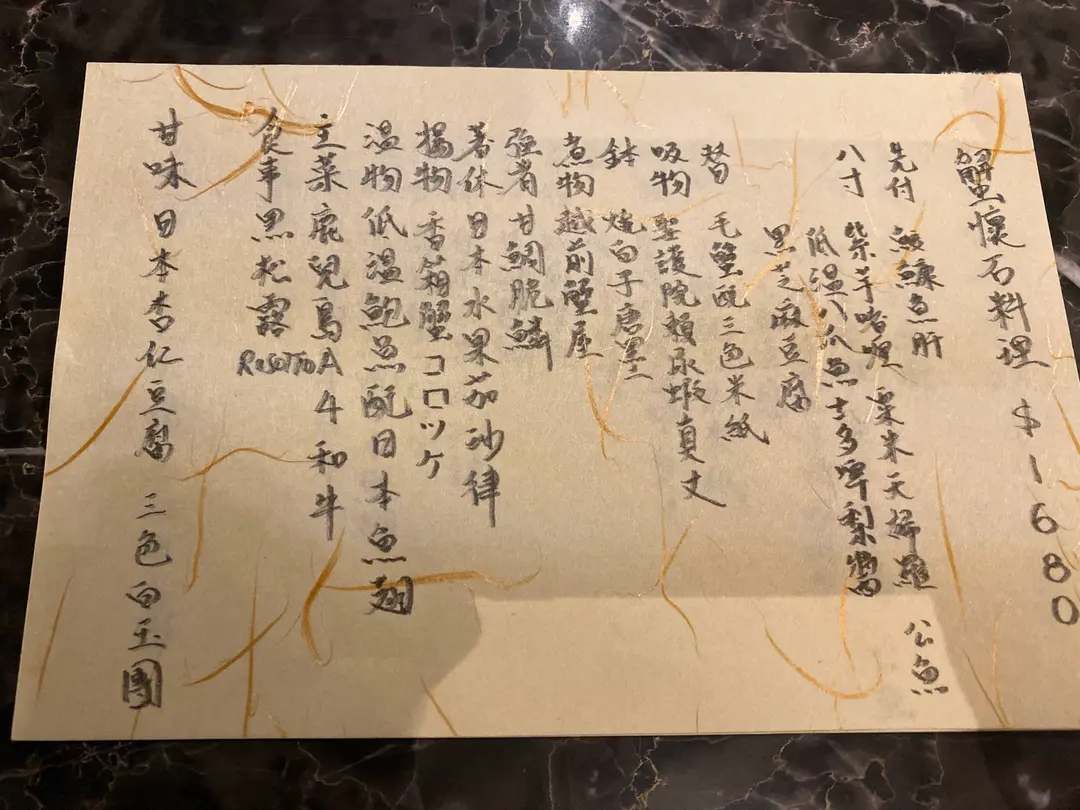 蟹懷石料理 $1680
先付 鮟鱇魚肝
八寸 紫芋啫喱 粟米天婦羅 公魚
低温八爪魚士多啤梨醬
黑芝麻豆腐
替 毛蟹配三色米紙
吸物 聖護院賴尿蝦真丈
鉢 燒白子唐墨
煮物 越前蟹屋
強肴 甘鯛脆鱗
箸休 日本水果茄沙律
揚物 香箱蟹コロツケ
温物 低温鮑魚配日本魚翅
主菜 鹿兒島A4和牛
食事 黑松露RisoTTo
甘味 日本杏仁豆腐 三色白玉團